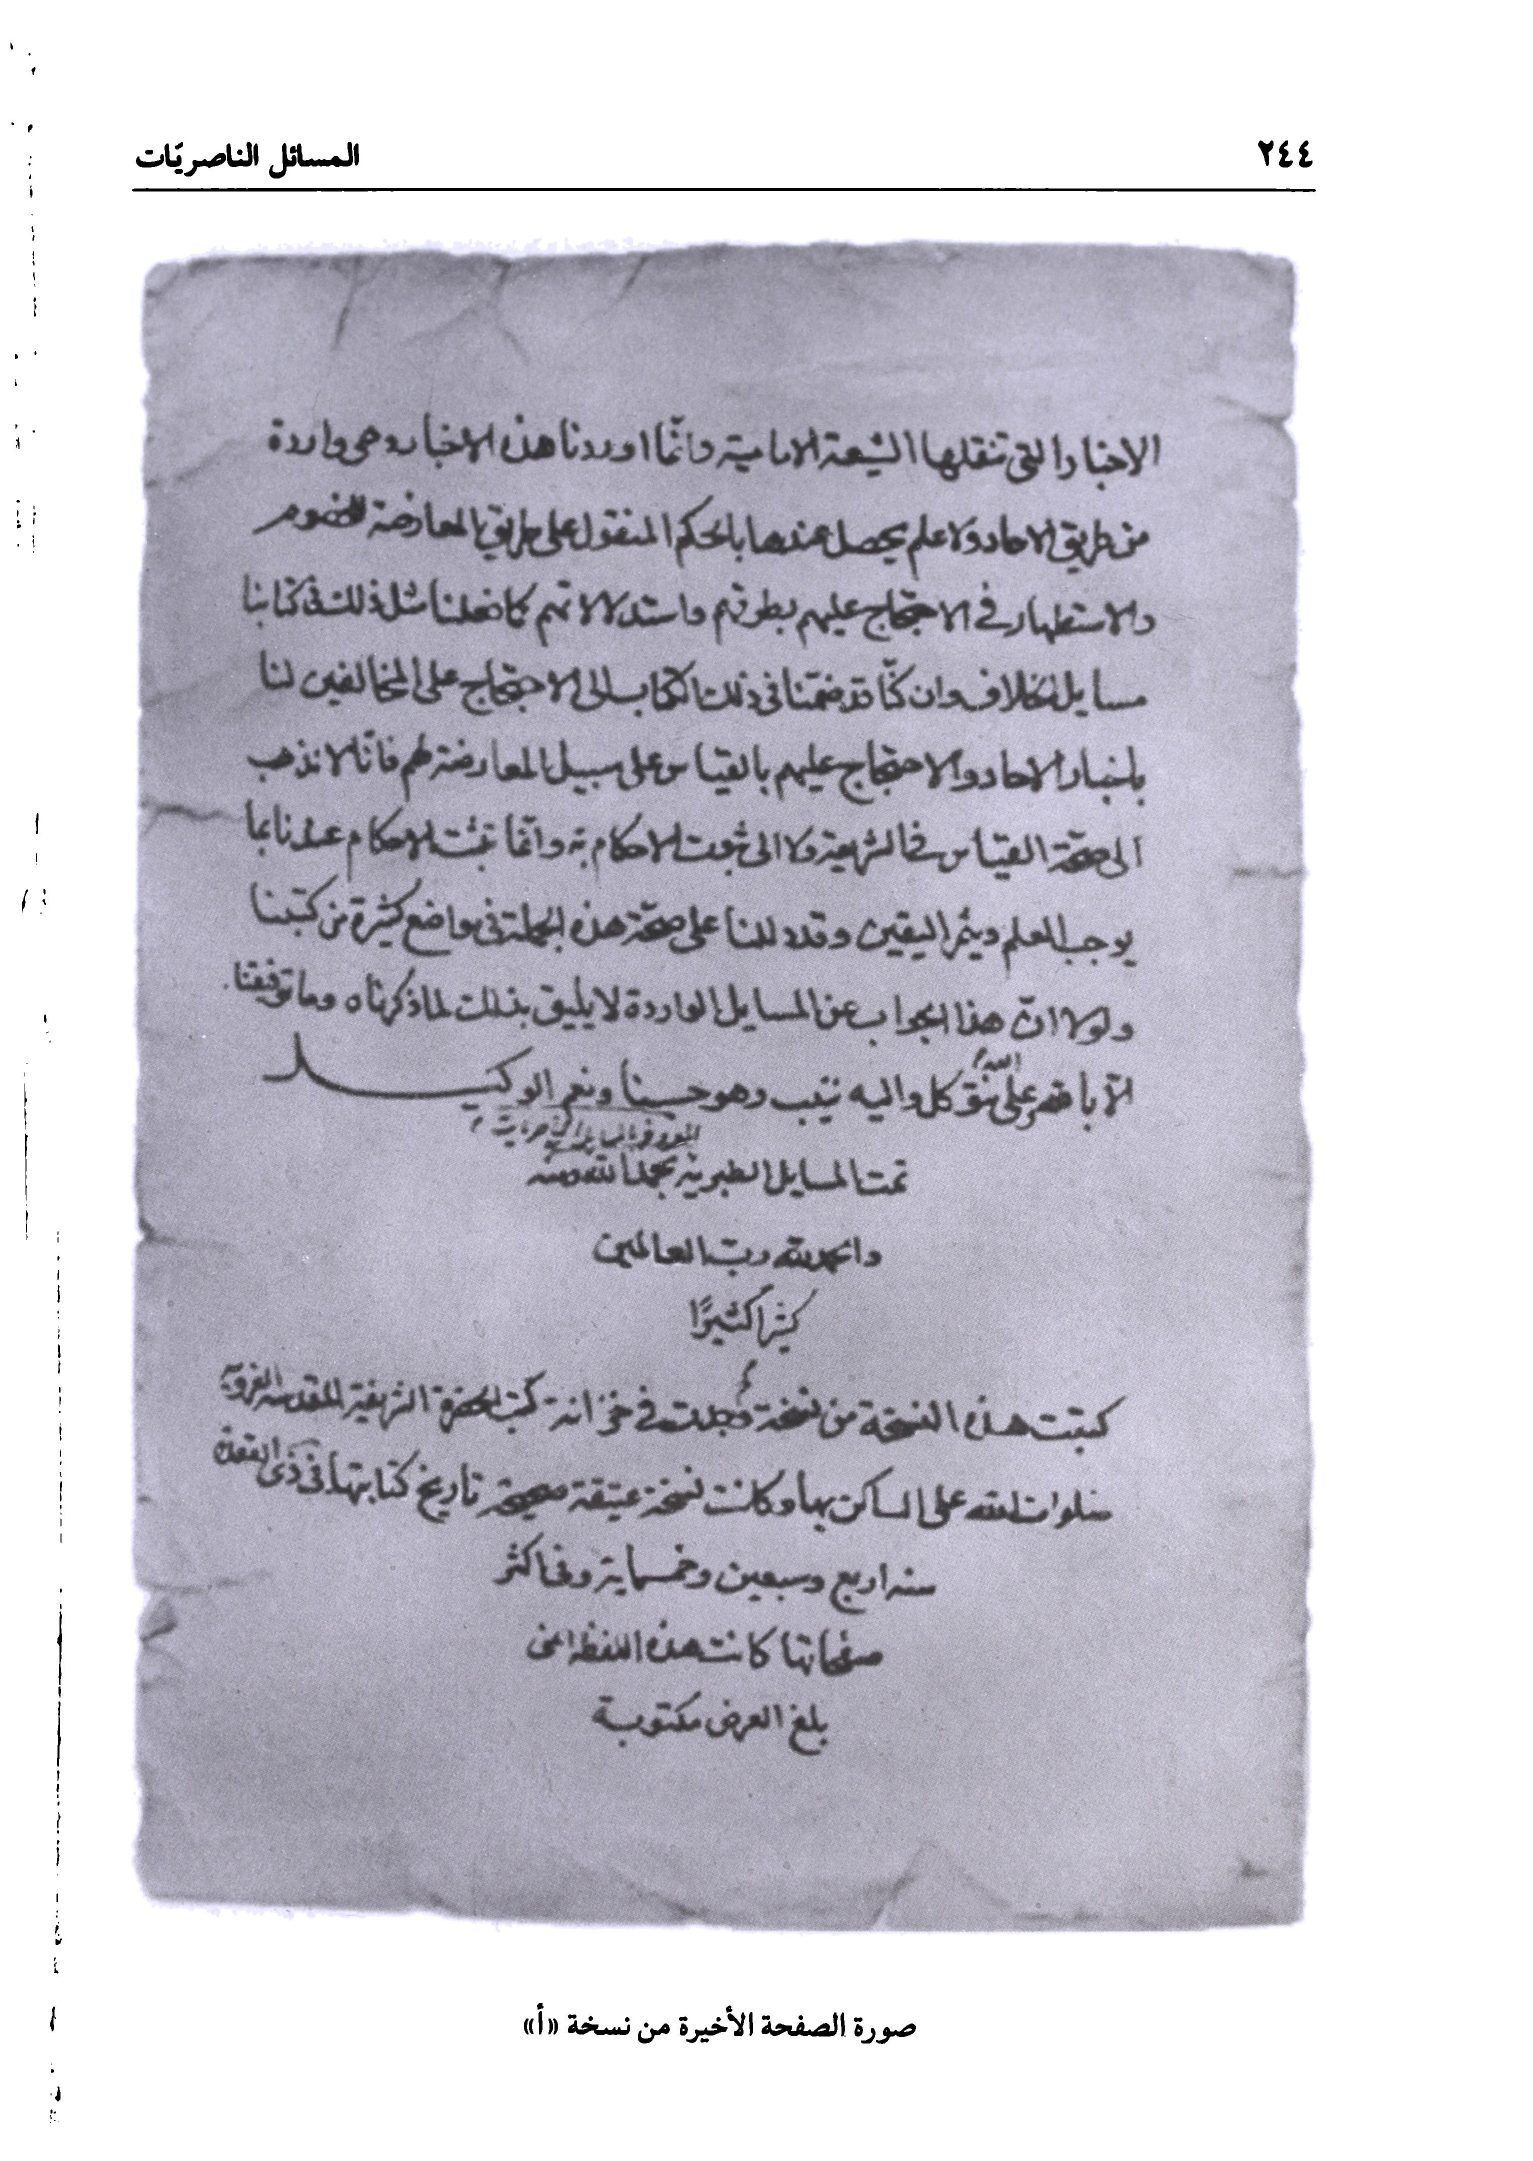 ٢٤٤
المسائل الناصريّات
الاخبار التى تنقلها الشيعة الامامية وانّما اوردنا هذه الاخبار وهى واردة
من طريق الاحاد ولا علم يحصل عندها بالحكم المنقول على طريق المعارضة للخصوم
والاستظهار في الاحتجاج عليهم بطرقهم واستدلالاتهم كما فعلنا مثل ذلك فى كتابنا
مسايل الخلاف وان كنّا قد ضمّنا فى ذلك الكتاب الى الاحتجاج على المخالفين لنا
باخبار الاحاد والاحتجاج عليهم بالقياس على سبيل المعارضة لهم فانّا لا نذهب
الى صحّة القياس فى الشريعة ولا الى ثبوت الاحكام به وانّما تثبت الاحكام عندنا بما
يوجب العلم ويثمر اليقين وقد دللنا على صحّة هذه الجملة فى مواضع كثيرة من كتبنا
ولولا انّ هذا الجواب عن المسايل الواردة لا يليق بذلك لما ذكرناه وما توفيقنا
الّا بالله عليه نتوكل واليه ننيب وهو حسبنا ونعم الوكيل
المعروف بالمسايل الناصريات
تمت المسايل الطبرية بحمد الله ومنه
والحمد لله ربّ العالمين
كثيرا كثيرًا
كتبت هذه النسخة من نسخة وجدت في خزانة كتب الحضرة الشريفة المقدسة الغروية
صلوات الله على الساكن بها وكانت نسخة عتيقة صحيحة تاريخ كتابتها فى ذى القعدة
سنه اربع وسبعين وخمسماية وفى اكثر
صفحاتها كانت هذه اللفظة اعنى
بلغ العرض مكتوبة
صورة الصفحة الأخيرة من نسخة «أ»